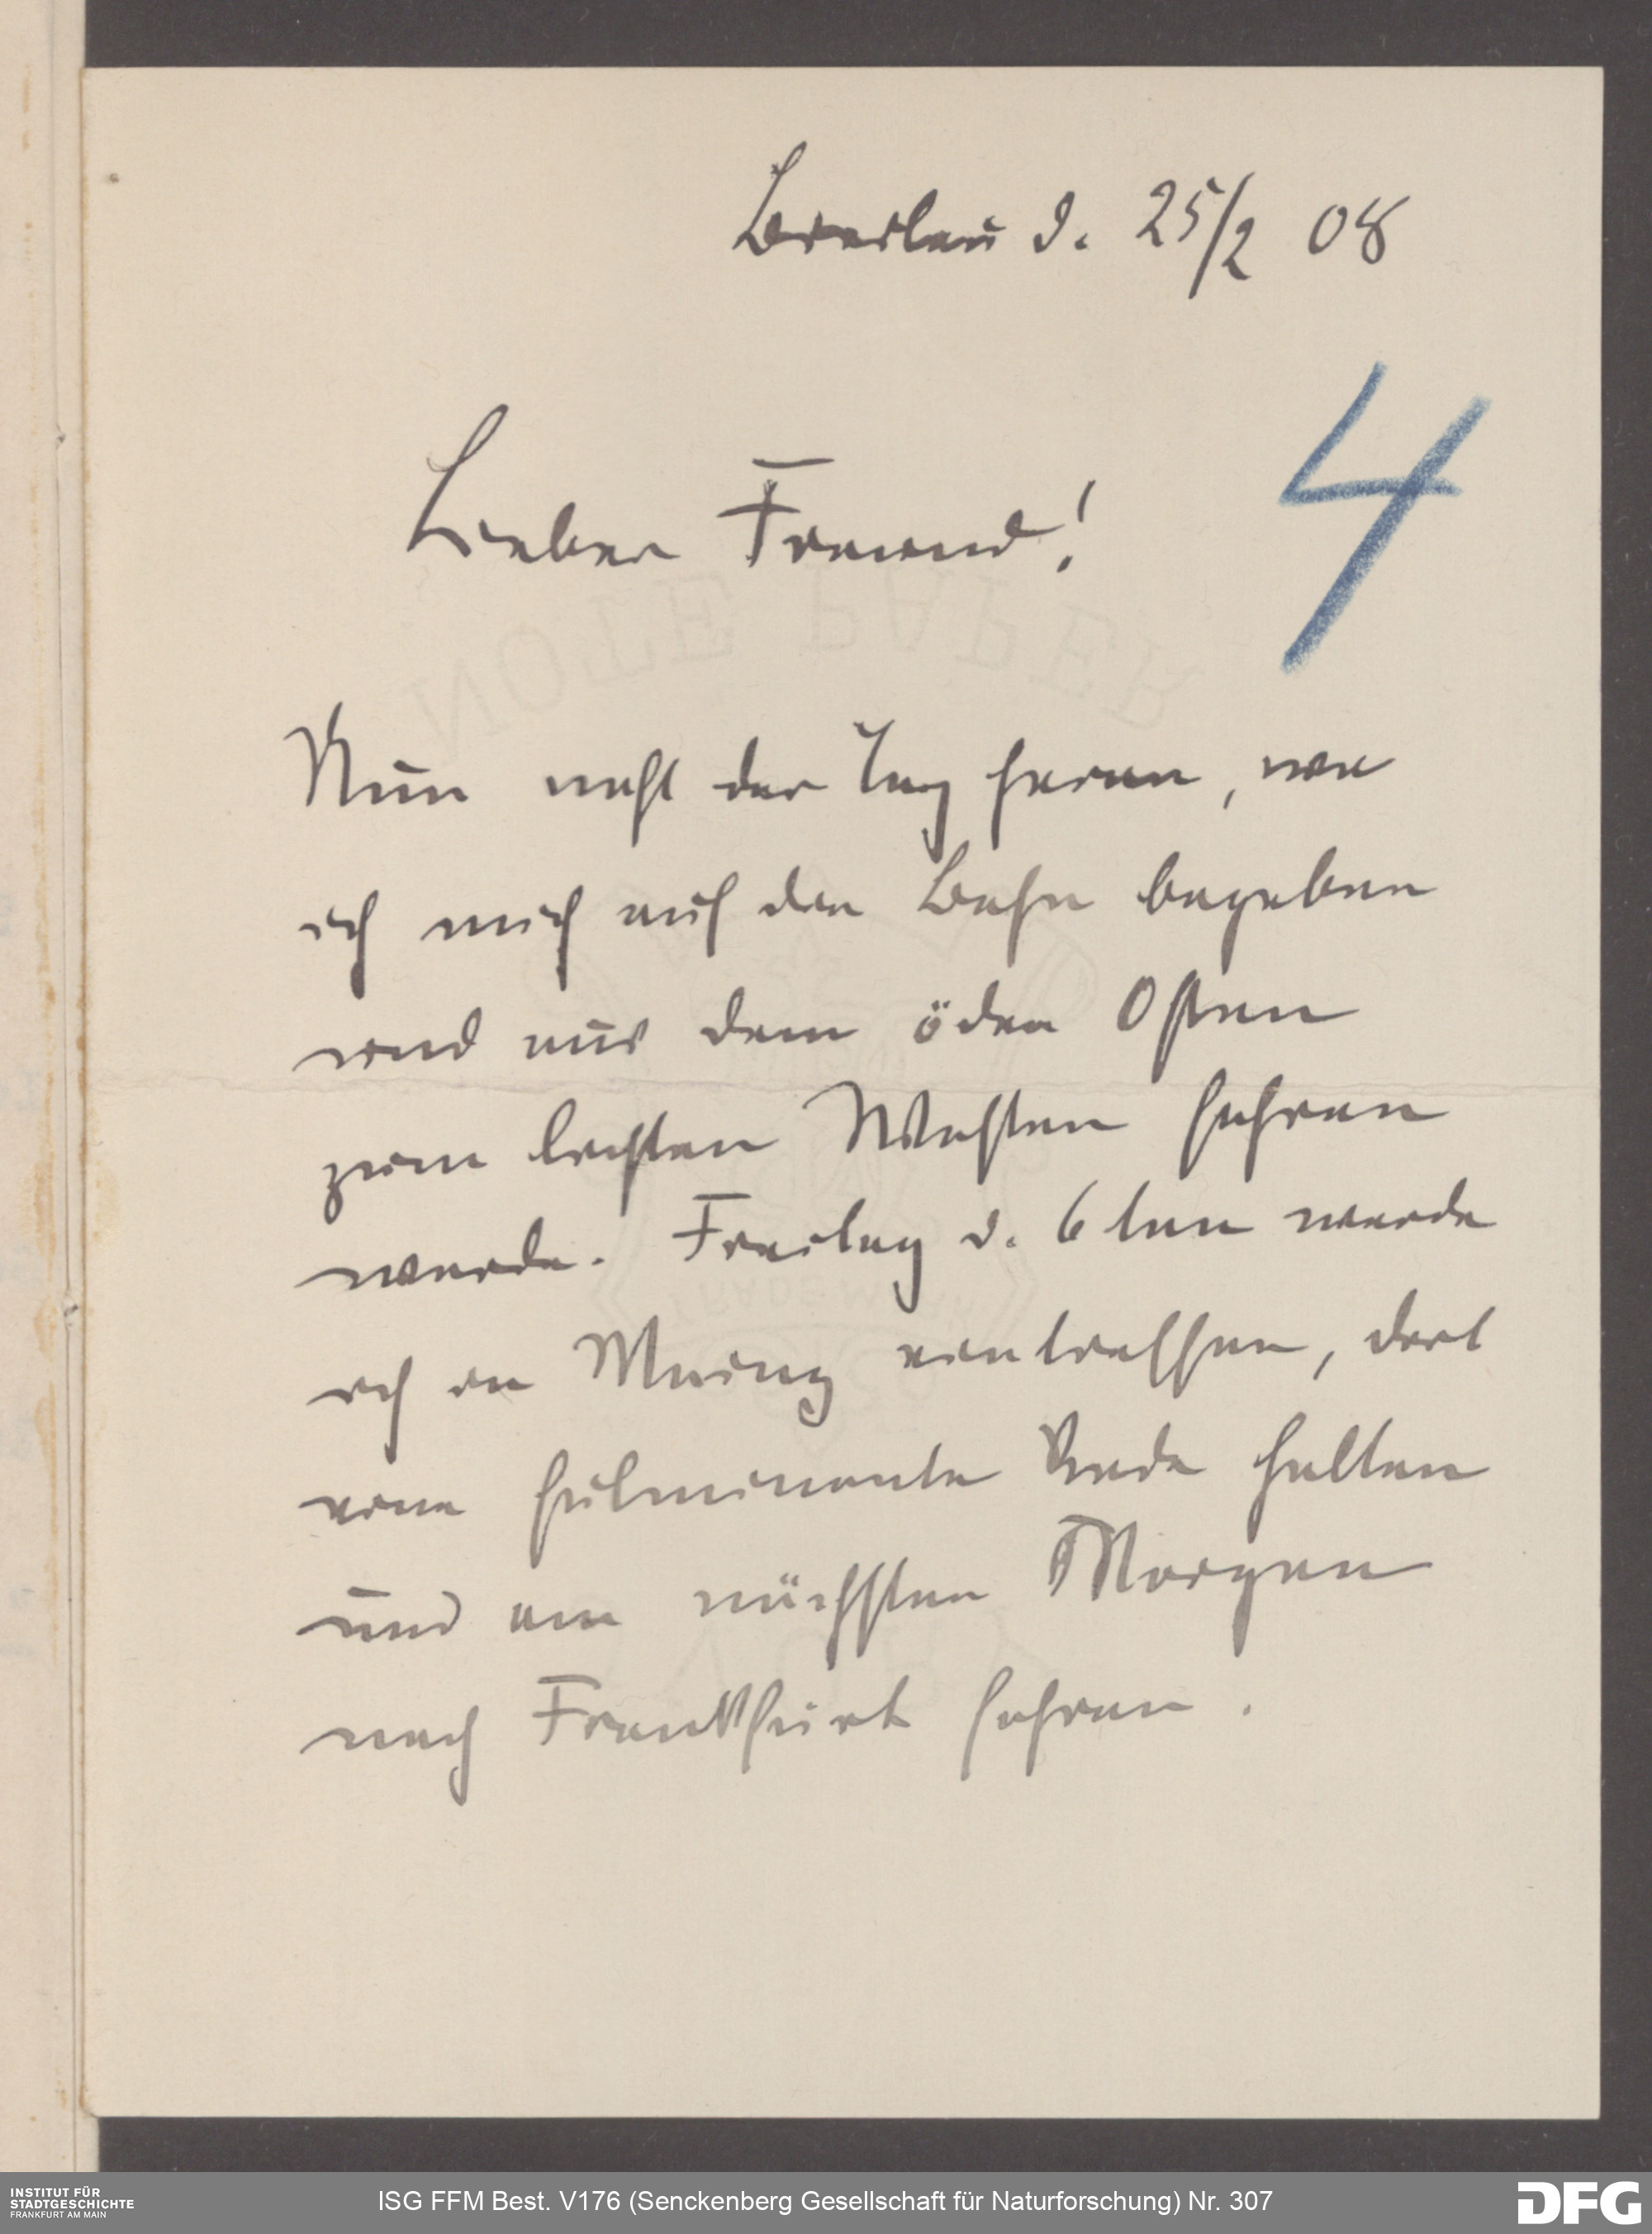 Breslau d. 25/2 08
4
Lieber Freund!
NOTE PAPER
Nun naht der Tag heran, wo
ich mich auf den Bahn begeben
und aus dem öden Osten
zum lichten Westen fahren
werde. Freitag d. 6ten werde
ich in Mainz eintreffen, dort
eine fulminante Rede halten
und am nächsten Morgen
nach Frankfurt fahren.
INSTITUT FÜR
STADTGESCHICHTE
FRANKFURT AM MAIN
ISG FFM Best. V176 (Senckenberg Gesellschaft für Naturforschung) Nr. 307
DFG